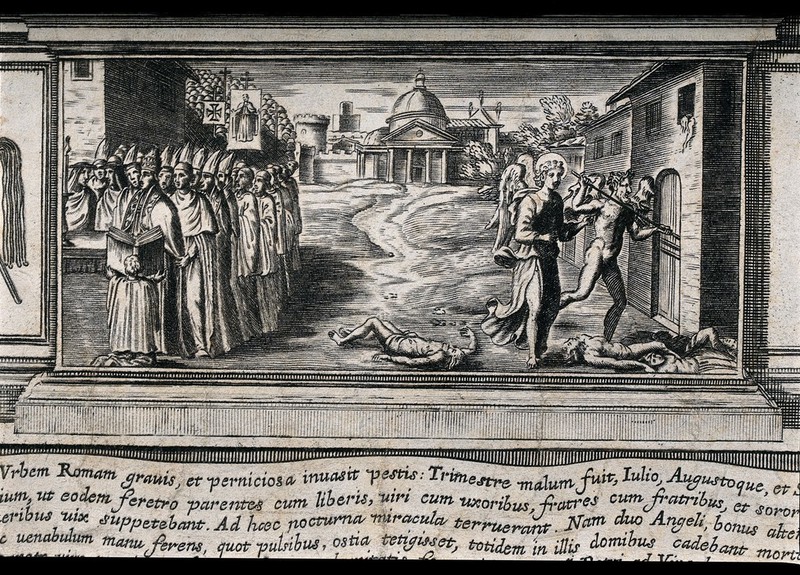 Vrbem Romam grauis, et perniciosa inuasit pestis: Trimestre malum fuit, Iulio, Augustoque, et S
ium, ut eodem feretro parentes cum liberis, uiri cum uxoribus, fratres cum fratribus, et soror
eribus uix suppetebant. Ad hæc nocturna miracula terruerant. Nam duo Angeli, bonus alter
c uenabulum manu ferens, quot pulsibus, ostia tetigisset, totidem in illis domibus cadebant mort